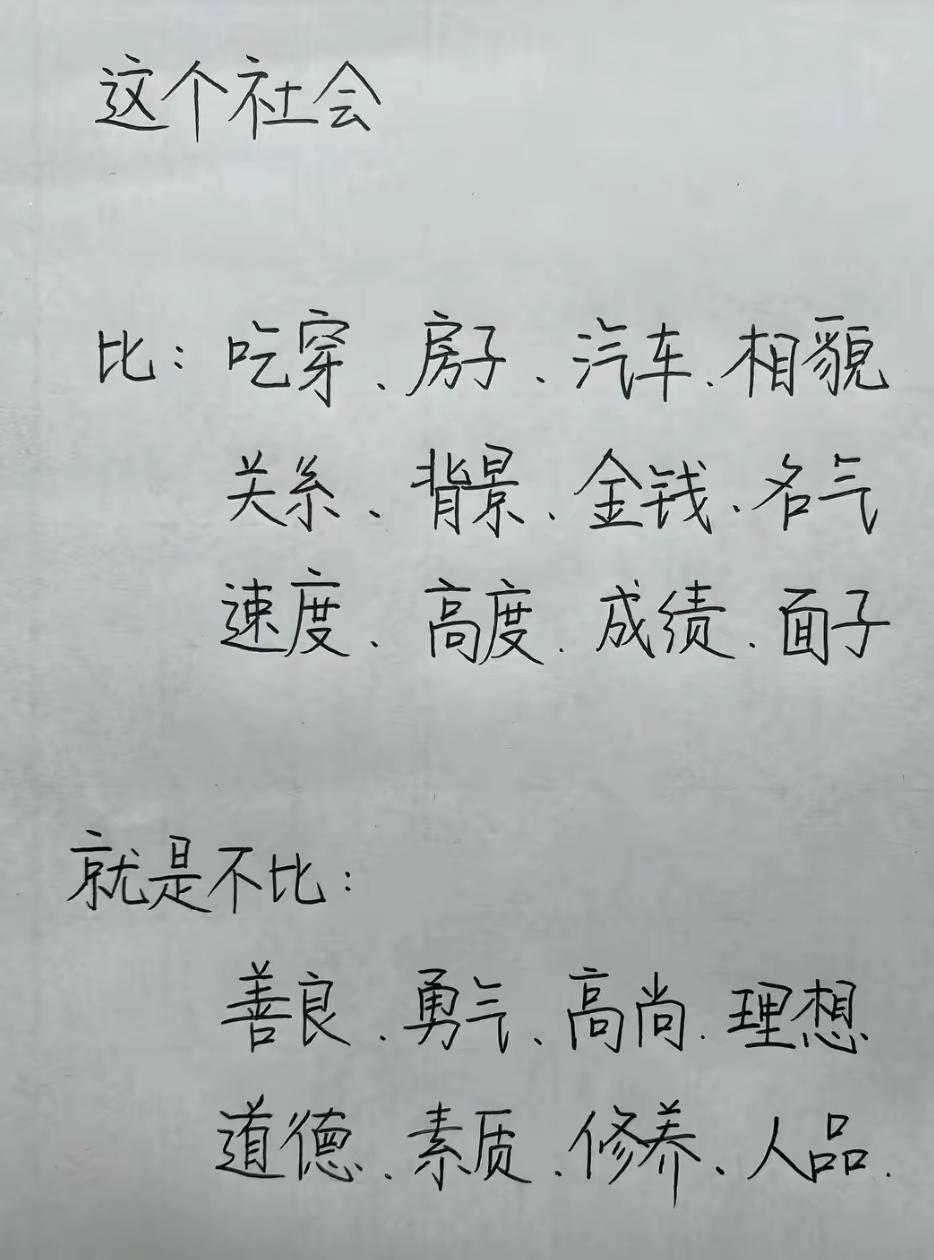 这个社会
比：吃穿、房子、汽车、相貌
关系、背景、金钱、名气
速度、高度、成绩、面子
就是不比：
善良、勇气、高尚、理想
道德、素质、修养、人品.